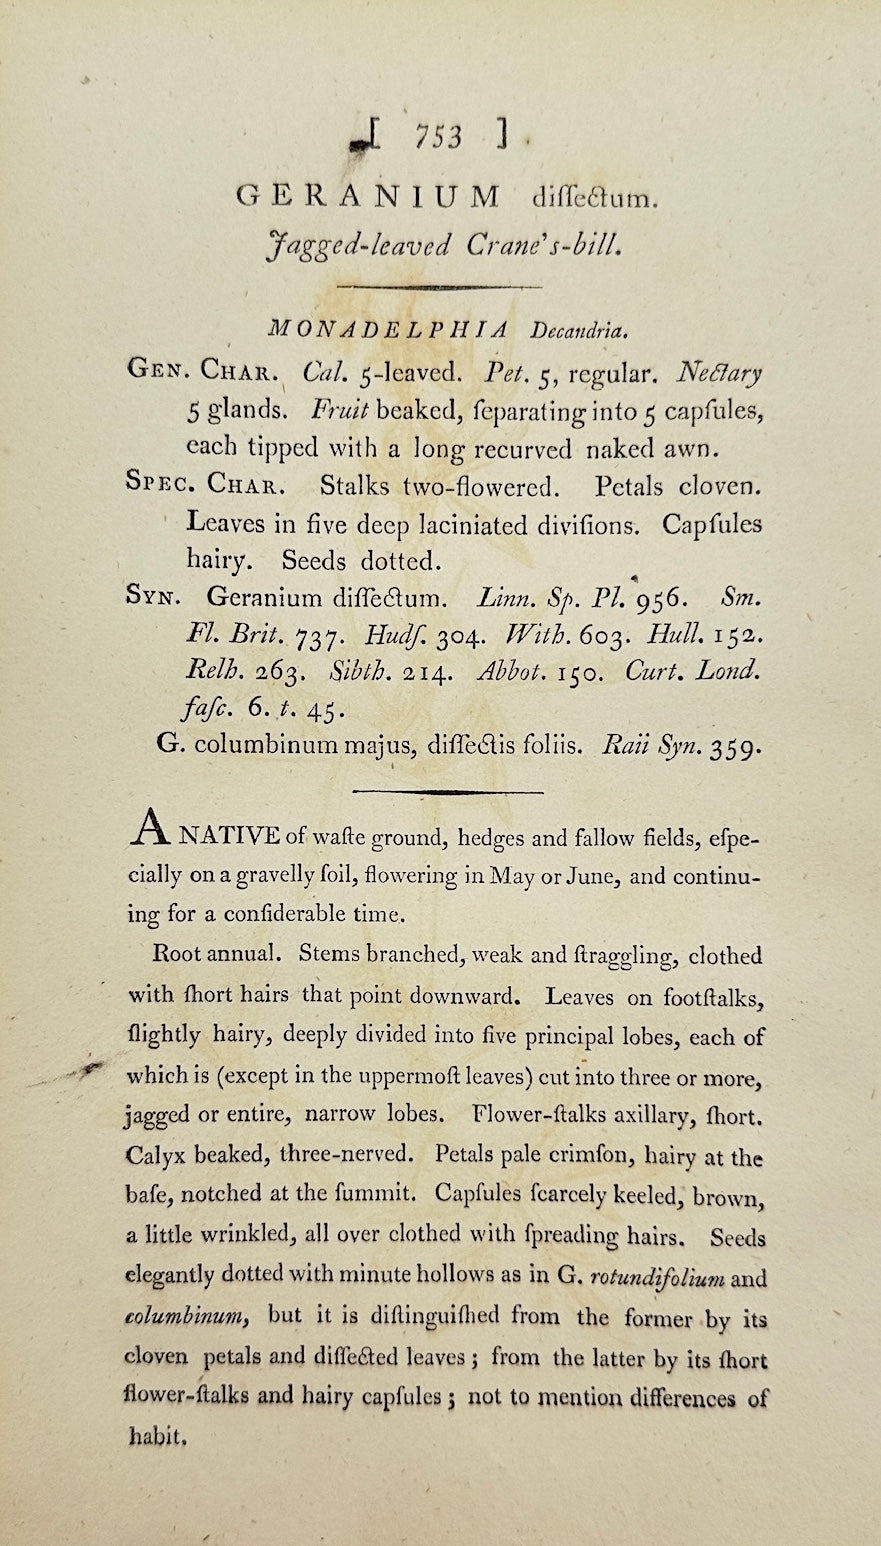 [ 753 ]
GERANIUM diſſectum.
Jagged-leaved Crane's-bill.
MONADELPHIA Decandria.
GEN. CHAR. Cal. 5-leaved. Pet. 5, regular. Nectary
5 glands. Fruit beaked, ſeparating into 5 capſules,
each tipped with a long recurved naked awn.
SPEC. CHAR. Stalks two-flowered. Petals cloven.
Leaves in five deep laciniated diviſions. Capſules
hairy. Seeds dotted.
SYN. Geranium diſſectum. Linn. Sp. Pl. 956. Sm.
Fl. Brit. 737. Hudſ. 304. With. 603. Hull. 152.
Relh. 263. Sibth. 214. Abbot. 150. Curt. Lond.
faſc. 6. t. 45.
G. columbinum majus, diſſectis foliis. Raii Syn. 359.
A NATIVE of waſte ground, hedges and fallow fields, eſpe-
cially on a gravelly ſoil, flowering in May or June, and continu-
ing for a conſiderable time.
Root annual. Stems branched, weak and ſtraggling, clothed
with ſhort hairs that point downward. Leaves on footſtalks,
ſlightly hairy, deeply divided into five principal lobes, each of
which is (except in the uppermoſt leaves) cut into three or more,
jagged or entire, narrow lobes. Flower-ſtalks axillary, ſhort.
Calyx beaked, three-nerved. Petals pale crimſon, hairy at the
baſe, notched at the ſummit. Capſules ſcarcely keeled, brown,
a little wrinkled, all over clothed with ſpreading hairs. Seeds
elegantly dotted with minute hollows as in G. rotundifolium and
columbinum, but it is diſtinguiſhed from the former by its
cloven petals and diſſected leaves; from the latter by its ſhort
flower-ſtalks and hairy capſules; not to mention differences of
habit.